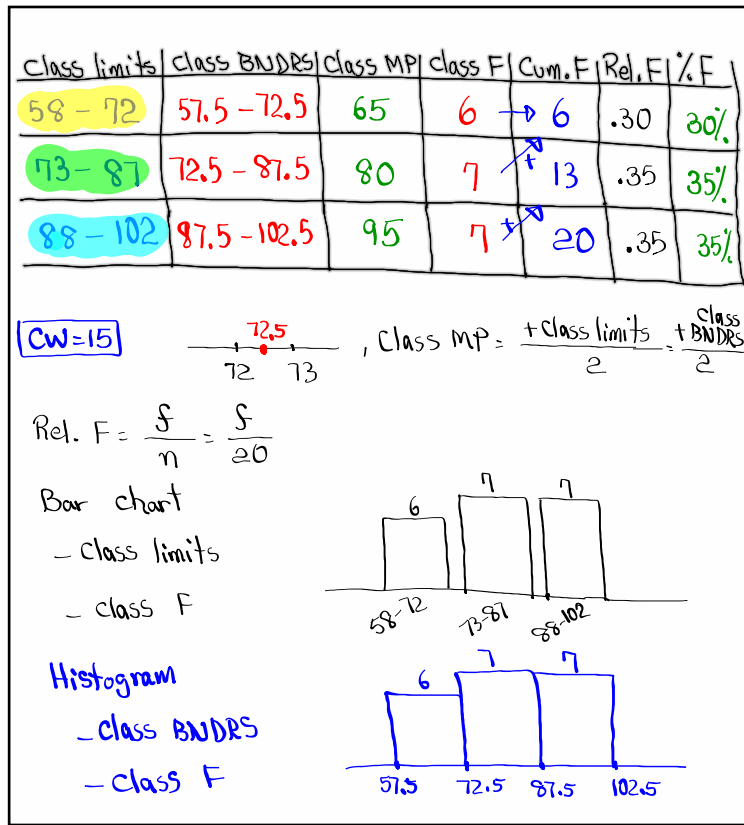 Class limits | Class BNDRS | Class MP | Class F | Cum. F | Rel. F | % F
58 - 72 57.5 - 72.5 65 6 → 6 .30 30%
73 - 87 72.5 - 87.5 80 7 + 13 .35 35%
88 - 102 87.5 - 102.5 95 7 + 20 .35 35%
CW=15
72.5
72 73
, Class MP = + Class limits / 2 = + class BNDRS / 2
Rel. F = f / n = f / 20
Bar chart
- Class limits
- class F
6 7 7
58-72 73-87 88-102
Histogram
- Class BNDRS
- Class F
6 7 7
57.5 72.5 87.5 102.5